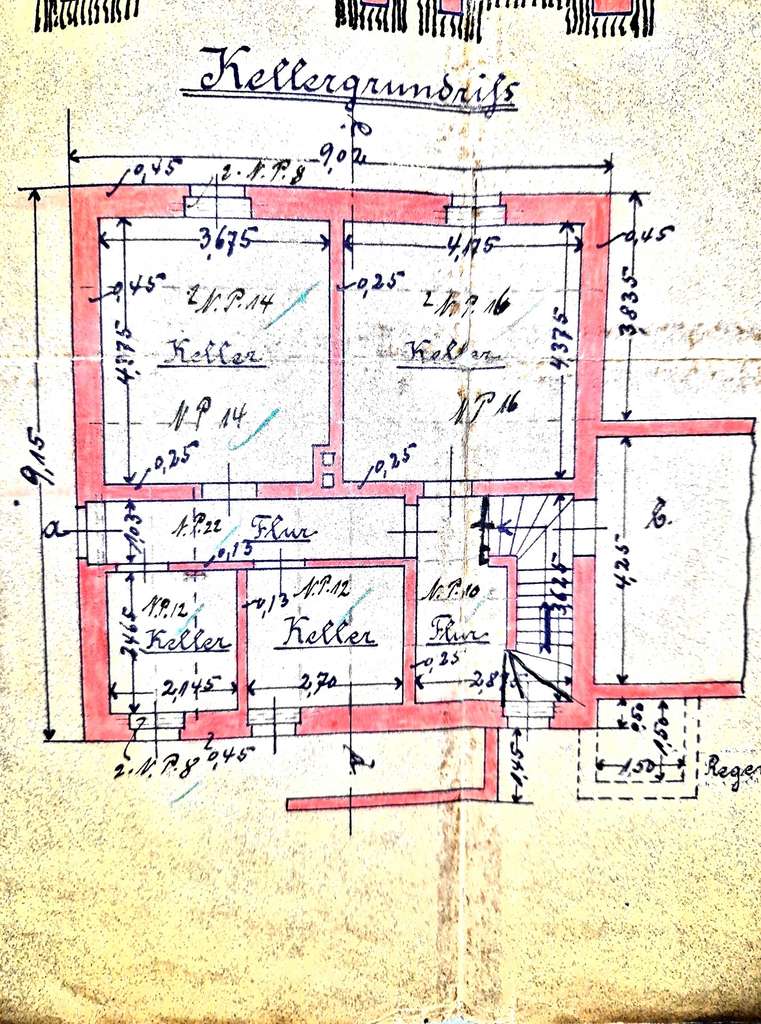 Kellergrundriſs
9,02
0,45
2. N.P.8
3,675
4,175
0,45
0,45
0,25
3,835
2 N.P.14
2 N.P.16
4,375
4,375
Keller
Keller
N P 14
N P 16
9,15
0,25
0,25
a
1,03
N.P.22
Flur
b.
0,13
4,25
3,625
N.P.12
N.P.12
N.P.10
2,465
Keller
0,13
Keller
Flur
0,25
2,145
2,70
0,50
1,50
2. N.P.8
0,45
1,45
1,50